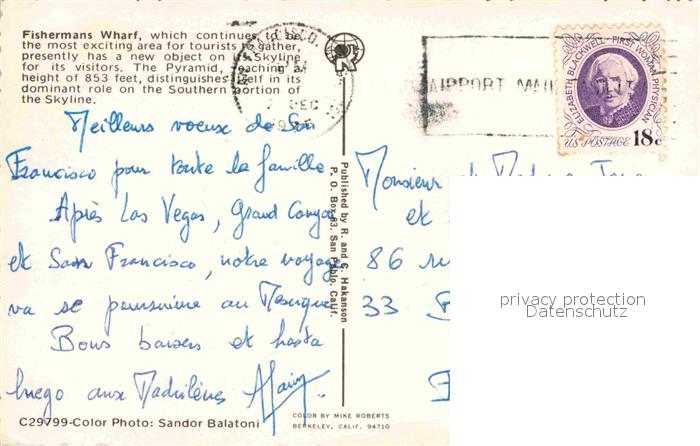 Fishermans Wharf, which continues to be
the most exciting area for tourists to gather,
presently has a new object on its Skyline
for its visitors. The Pyramid, reaching a
height of 853 feet, distinguishes itself in its
dominant role on the Southern portion of
the Skyline.
Meilleurs voeux de San
Francisco pour toute la famille
Après Las Vegas, Grand Canyon
et San Francisco, notre voyage
va se poursuivre au Mexique
Bons baisers et hasta
luego aux Madrilènes Alain
C29799-Color Photo: Sandor Balatoni
Published by R. and C. Hakanson
P. O. Box 83, San Pablo, Calif.
COLOR BY MIKE ROBERTS
BERKELEY, CALIF. 94710
DEC
AIRPORT MAIL
ELIZABETH BLACKWELL · FIRST WOMAN PHYSICIAN
US POSTAGE 18c
Monsieur et Madame
et
86
33
privacy protection
Datenschutz